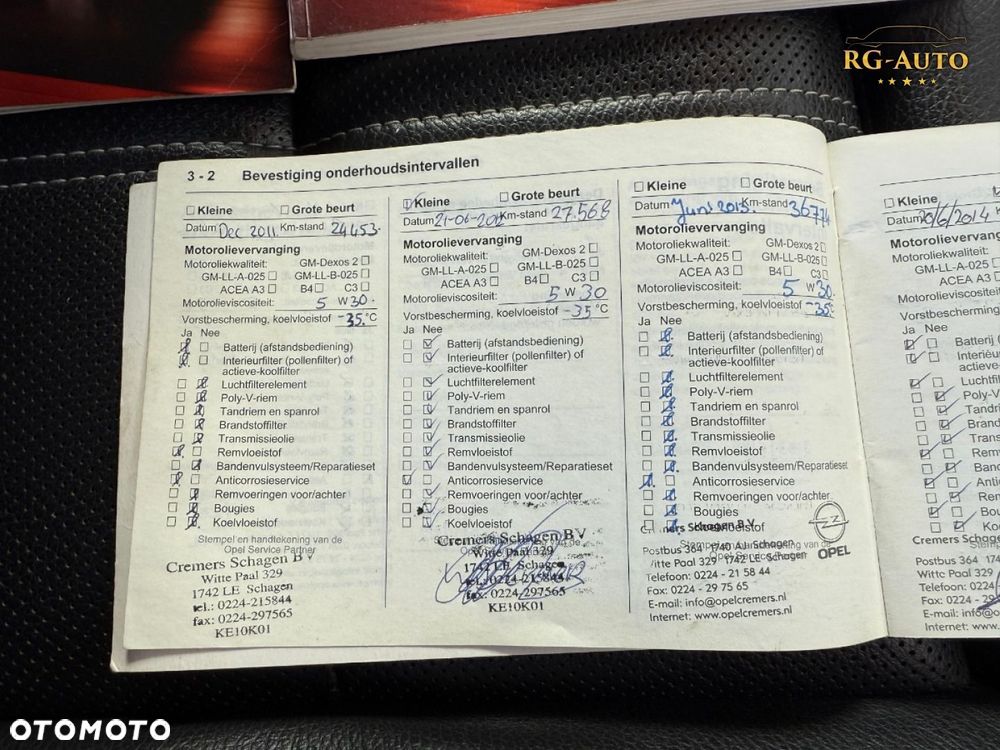 RG-AUTO
3 - 2 Bevestiging onderhoudsintervallen
Kleine Grote beurt
Datum Dec 2011. Km-stand 24453.
Motorolievervanging
Motoroliekwaliteit: GM-Dexos 2
GM-LL-A-025 GM-LL-B-025
ACEA A3 B4 C3
Motorolieviscositeit: 5 W 30.
Vorstbescherming, koelvloeistof -35.°C
Ja Nee
Batterij (afstandsbediening)
Interieurfilter (pollenfilter) of
actieve-koolfilter
Luchtfilterelement
Poly-V-riem
Tandriem en spanrol
Brandstoffilter
Transmissieolie
Remvloeistof
Bandenvulsysteem/Reparatieset
Anticorrosieservice
Remvoeringen voor/achter
Bougies
Koelvloeistof
Stempel en handtekening van de
Opel Service Partner
Cremers Schagen B V
Witte Paal 329
1742 LE Schagen
tel.: 0224-215844
fax: 0224-297565
KE10K01
Kleine Grote beurt
Datum 21-06-2012 Km-stand 27.568
Motorolievervanging
Motoroliekwaliteit: GM-Dexos 2
GM-LL-A-025 GM-LL-B-025
ACEA A3 B4 C3
Motorolieviscositeit: 5 W 30
Vorstbescherming, koelvloeistof -35 °C
Ja Nee
Batterij (afstandsbediening)
Interieurfilter (pollenfilter) of
actieve-koolfilter
Luchtfilterelement
Poly-V-riem
Tandriem en spanrol
Brandstoffilter
Transmissieolie
Remvloeistof
Bandenvulsysteem/Reparatieset
Anticorrosieservice
Remvoeringen voor/achter
Bougies
Koelvloeistof
Cremers Schagen BV
Witte Paal 329
1742 LE Schagen
tel.: 0224-215844
fax: 0224-297565
KE10K01
Kleine Grote beurt
Datum Juni 2013. Km-stand 36774
Motorolievervanging
Motoroliekwaliteit: GM-Dexos 2
GM-LL-A-025 GM-LL-B-025
ACEA A3 B4 C3
Motorolieviscositeit: 5 W 30.
Vorstbescherming, koelvloeistof -35°
Ja Nee
Batterij (afstandsbediening)
Interieurfilter (pollenfilter) of
actieve-koolfilter
Luchtfilterelement
Poly-V-riem
Tandriem en spanrol
Brandstoffilter
Transmissieolie
Remvloeistof
Bandenvulsysteem/Reparatieset
Anticorrosieservice
Remvoeringen voor/achter
Bougies
Koelvloeistof
Cremers Schagen B.V.
Postbus 364 1740 AJ Schagen
Witte Paal 329 1742 LE Schagen
Telefoon: 0224 - 21 58 44
Fax: 0224 - 29 75 65
E-mail: info@opelcremers.nl
Internet: www.opelcremers.nl
OPEL
Kleine
Datum 20/6/2014
Motorolievervanging
Motoroliekwaliteit:
GM-LL-A-025
ACEA A3
Motorolieviscositeit:
Vorstbescherming, koelvloei
Ja Nee
Batterij (a
Interieu
actieve-
Luchtfil
Poly-V
Tandri
Brand
Trans
Rem
Band
Anti
Rem
Bou
Ko
Cremers Schagen
Postbus 364 174
Witte Paal 329
Telefoon: 0224
Fax: 0224 - 29
E-mail: info@o
Internet: www.
OTOMOTO